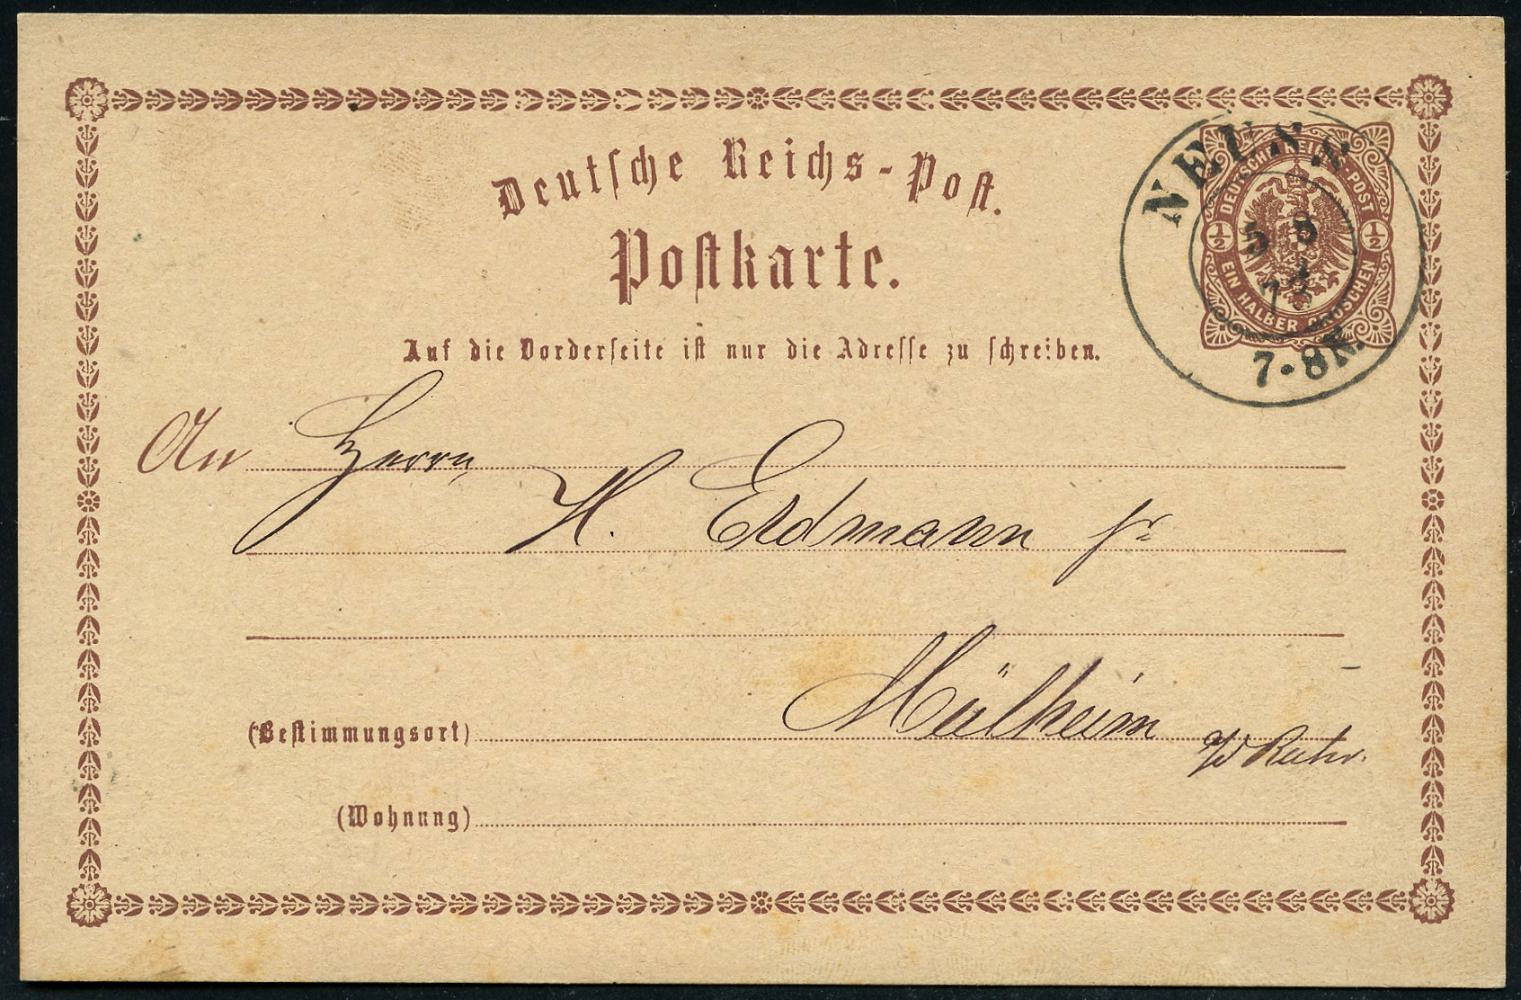 Deutsche Reichs-Post.
Postkarte.
NEUSS
5 8
7-8N.
DEUTSCHE REICHS-POST
1/2 1/2
EIN HALBER GROSCHEN
Auf die Vorderseite ist nur die Adresse zu schreiben.
An Herrn
H. Erdmann jr
(Bestimmungsort) Mülheim a/d Ruhr.
(Wohnung)